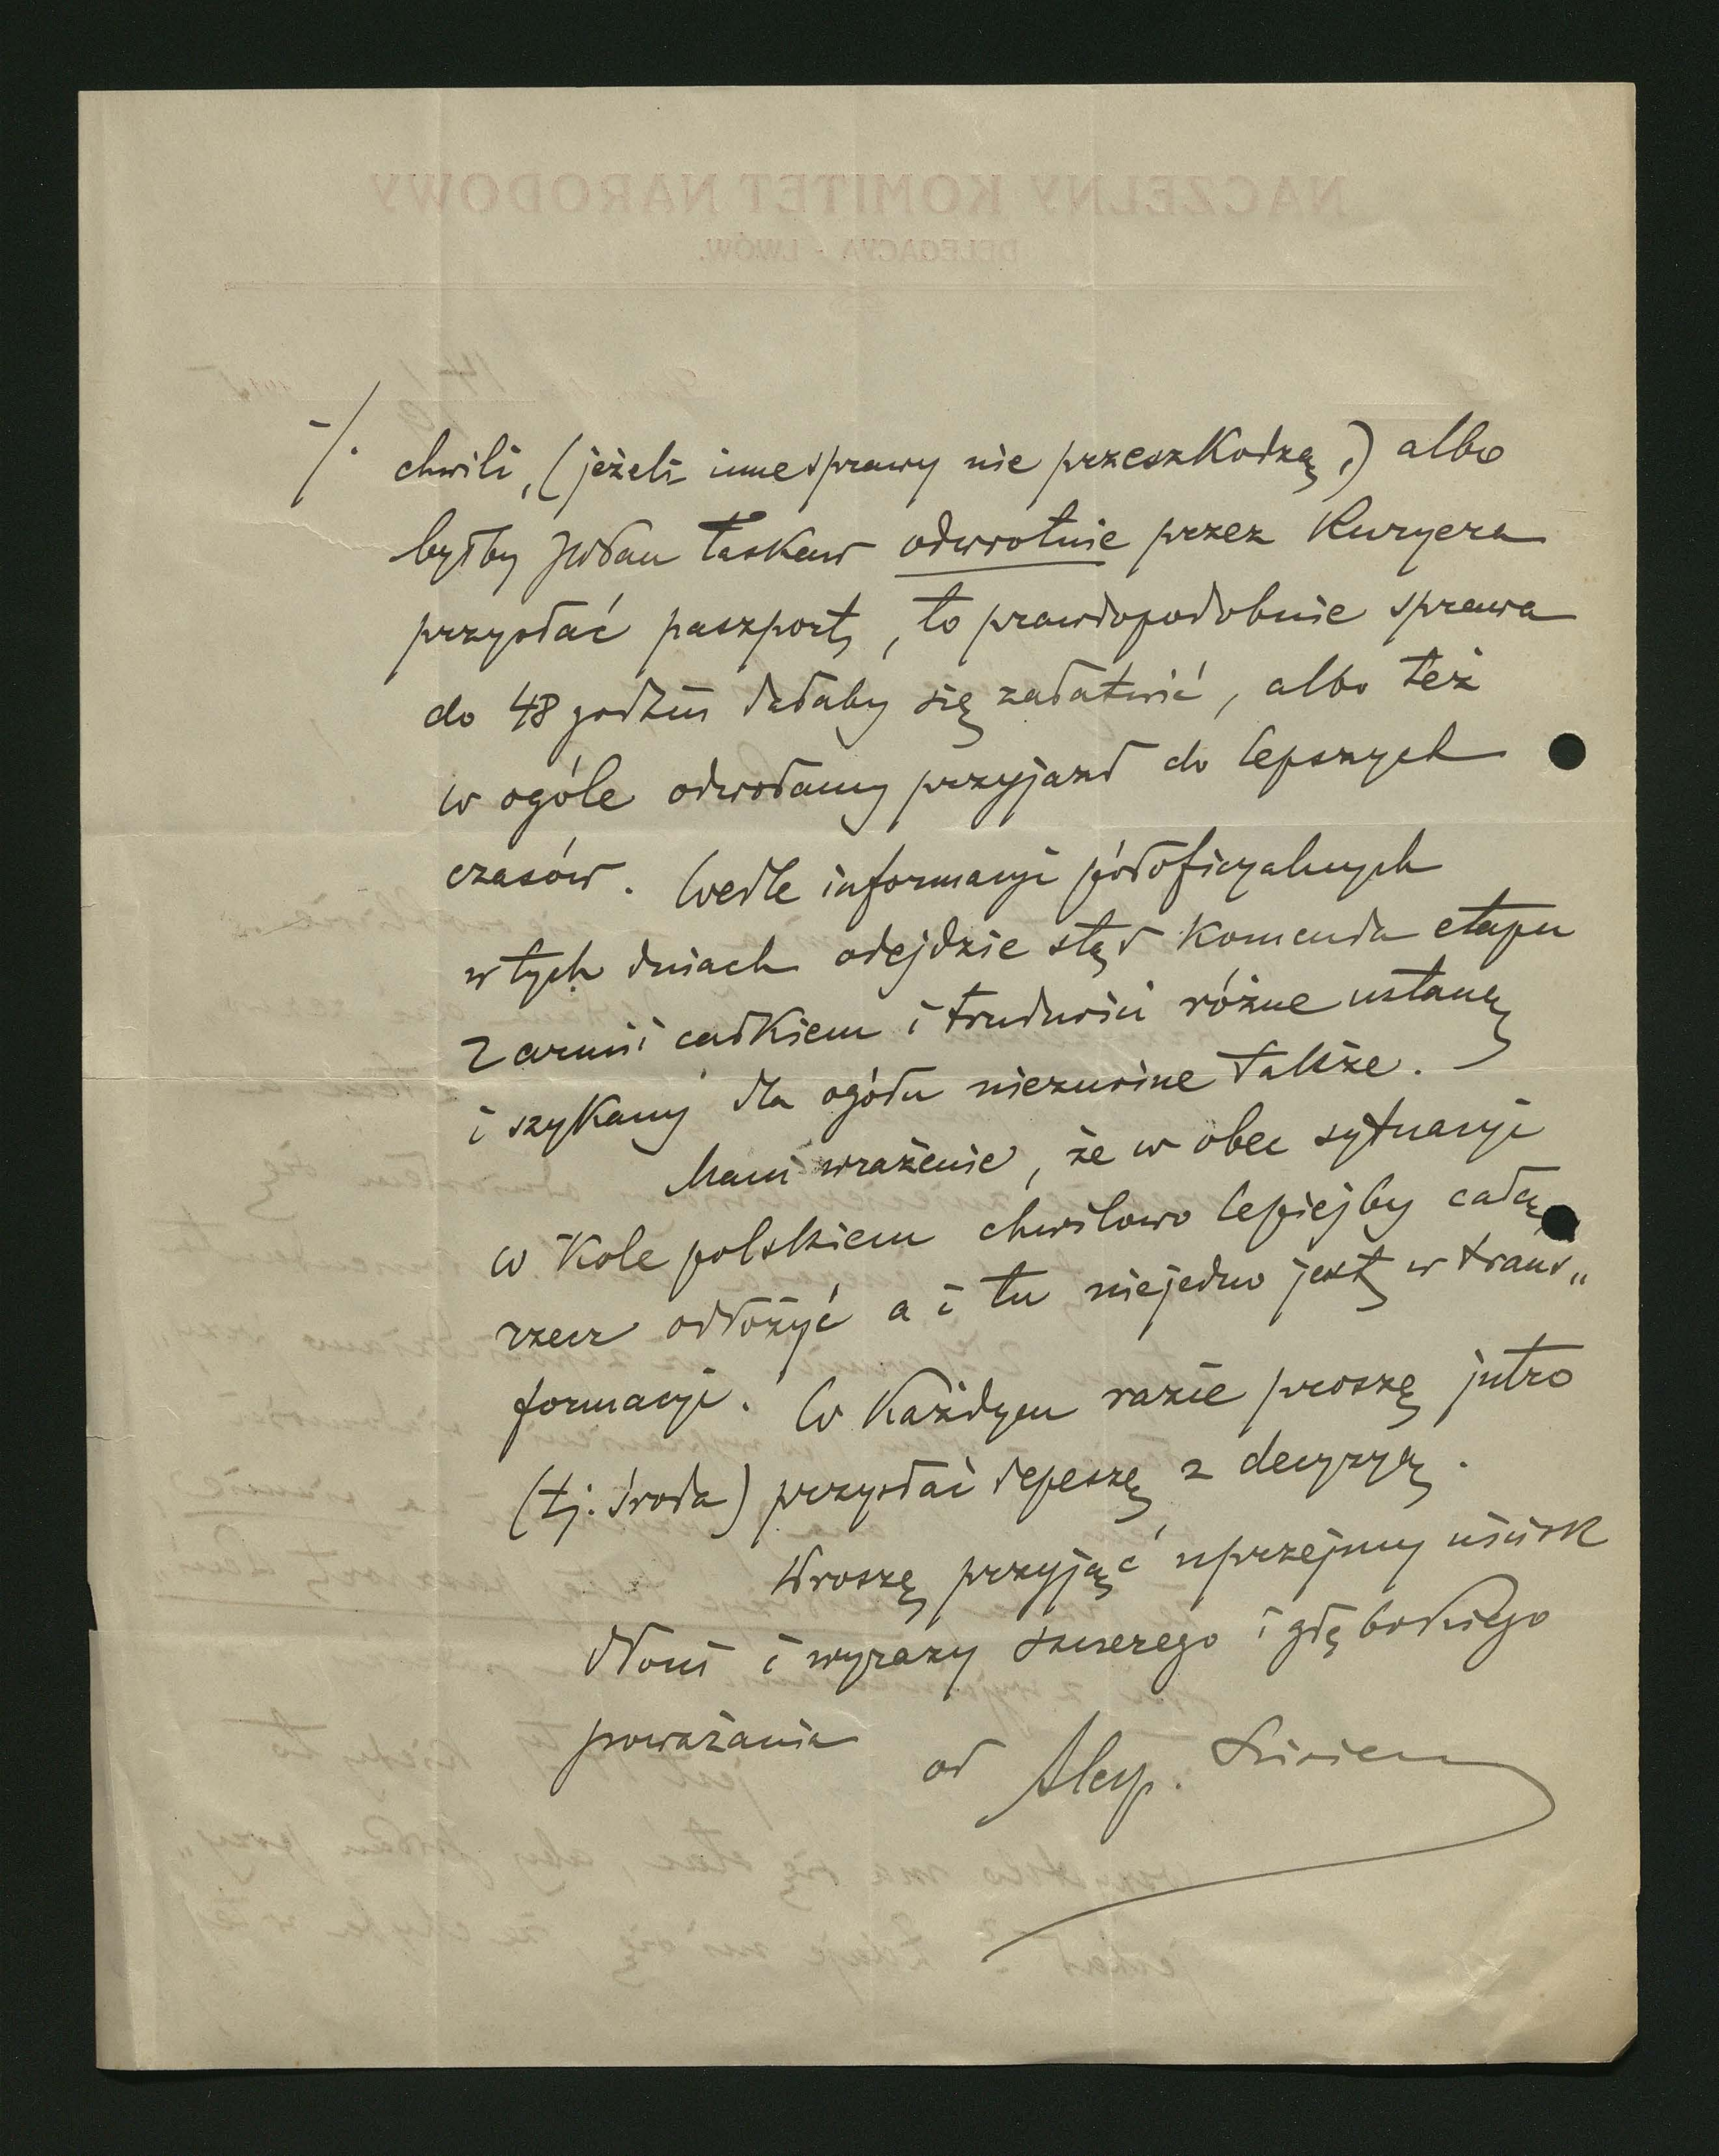 -/. chwili, (jeżeli inne sprawy nie przeszkodzą,) albo
byłby JWPan łaskaw odwrotnie przez Kuryera
przysłać paszport, to prawdopodobnie sprawa
do 48 godzin dałaby się załatwić, albo też
w ogóle odwołamy przyjazd do lepszych
czasów. Wedle informacyi półoficyalnych
w tych dniach odejdzie stąd Komenda etapu
z armii całkiem i trudności różne ustaną
i szykany dla ogółu nieznośne także.
Mam wrażenie, że w obec sytuacyi
w Kole polskiem chwilowo lepiejby całą
rzecz odłożyć a i tu niejedno jest w trans„
formacyi. W Każdym razie proszę jutro
(tj. środa) przysłać depeszę z decyzyą.
Proszę przyjąć uprzejmy uścisk
dłoni i wyrazy szczerego i głębokiego
poważania od
NACZELNY KOMITET NARODOWY
DELEGACYA - LWÓW.